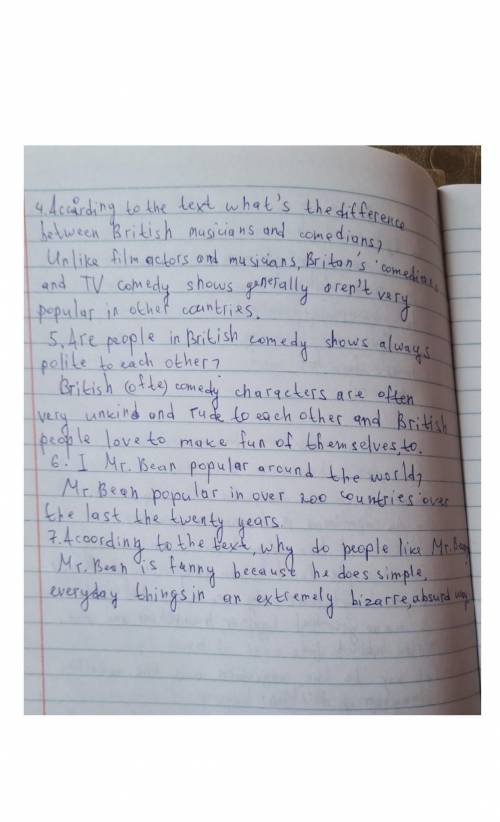 4. According to the text what's the difference
between British musicians and comedians,
Unlike film actors and musicians, Britan's comedians
and TV comedy shows generally aren't very
popular in other countries.
5. Are people in British comedy shows always
polite to each other,
British (ofte) comedy characters are often
very unkind and rude to each other and British
people love to make fun of themselves, to.
6. I Mr. Bean popular around the world,
Mr. Bean popular in over 200 countries over
the last the twenty years.
7. Acoording to the text, why do people like Mr. Bean
Mr. Bean is funny because he does simple,
everyday things in an extremely bizarre, absurd way